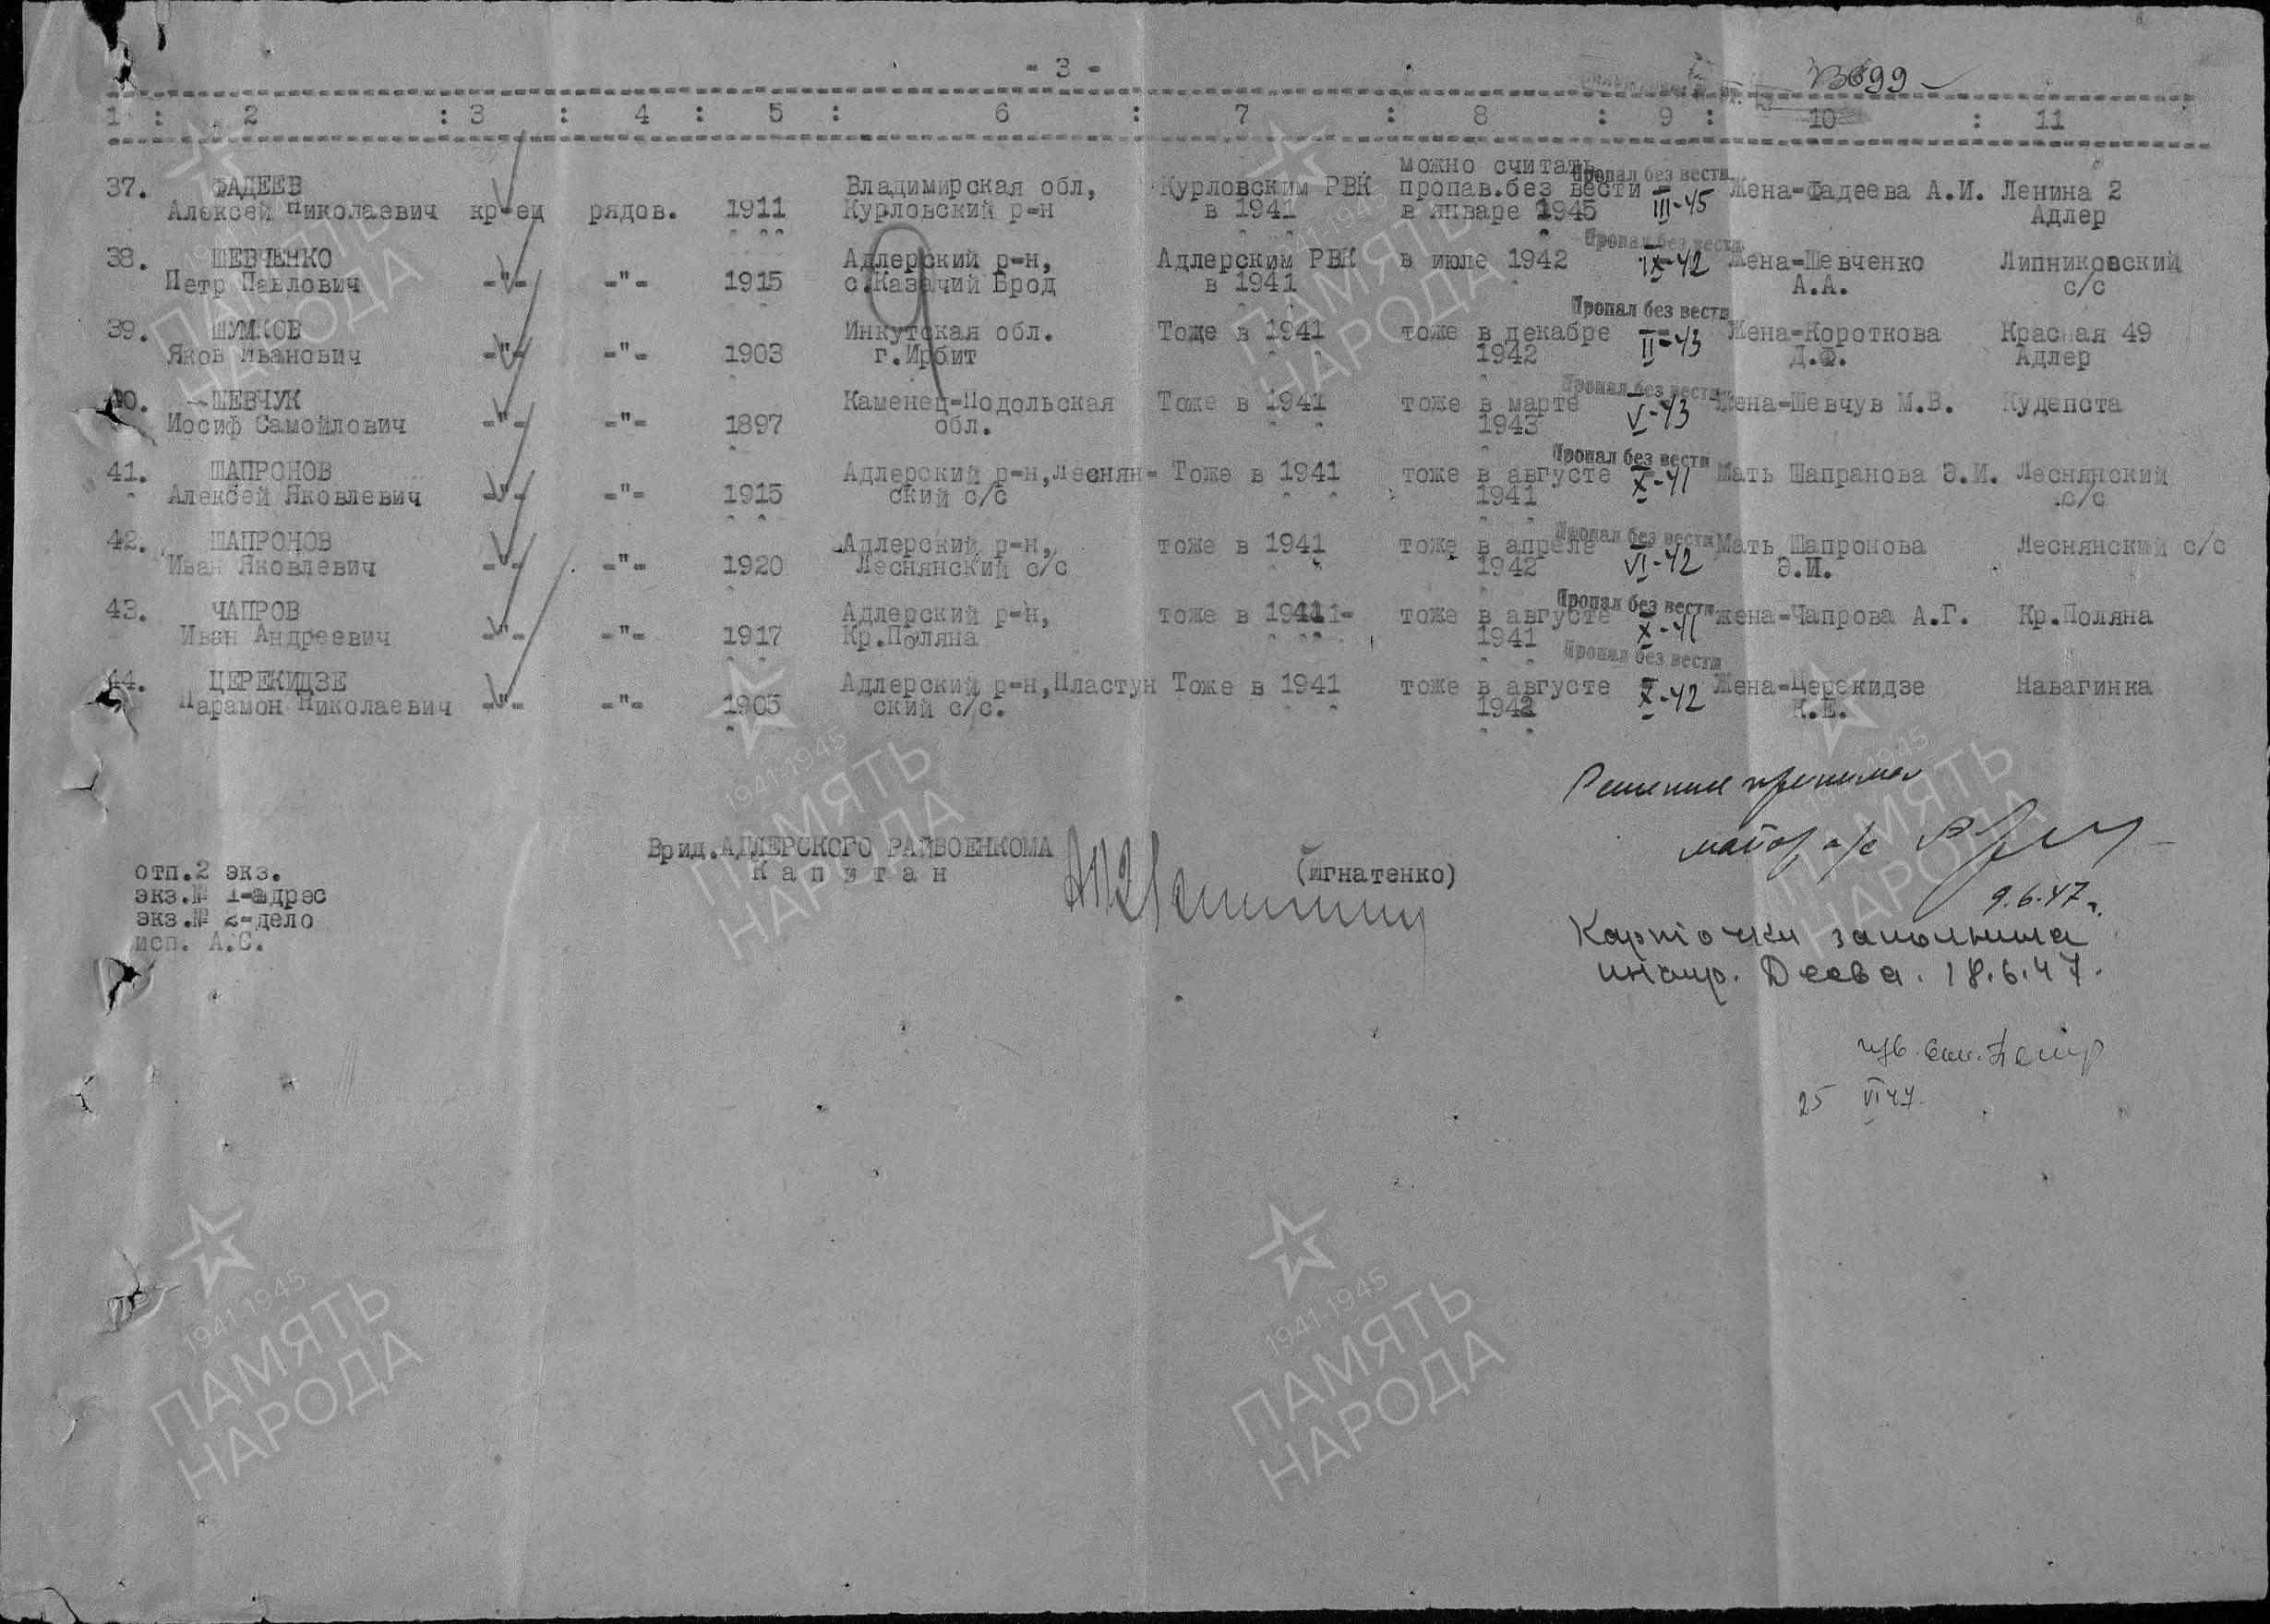 - 3 -
В699
1 : 2 : 3 : 4 : 5 : 6 : 7 : 8 : 9 : 10 : 11
можно считать
37. ФАДЕЕВ Владимирская обл, Курловским РВК пропав.без вести Пропал без вести Жена-Фадеева А.И. Ленина 2
Алексей Николаевич кр-ец рядов. 1911 Курловский р-н в 1941 в январе 1945 III-45 Адлер
38. ШЕВЧЕНКО Адлерский р-н, Адлерским РВК в июле 1942 Пропал без вести IX-42 Жена-Шевченко Липниковский
Петр Павлович -"- -"- 1915 с.Казачий Брод в 1941 А.А. с/с
39. ШУМКОВ Инкутская обл. Тоже в 1941 тоже в декабре Пропал без вести II-43 Жена-Короткова Красная 49
Яков Иванович -"- -"- 1903 г.Ирбит 1942 Д.Ф. Адлер
40. ШЕВЧУК Каменец-Подольская Тоже в 1941 тоже в марте Пропал без вести V-43 Жена-Шевчув М.В. Кудепста
Иосиф Самойлович -"- -"- 1897 обл. 1943
41. ШАПРОНОВ Адлерский р-н,Леснян- Тоже в 1941 тоже в августе Пропал без вести X-41 Мать Шапранова Э.И. Леснянский
Алексей Яковлевич -"- -"- 1915 ский с/с 1941 с/с
42. ШАПРОНОВ Адлерский р-н, тоже в 1941 тоже в апреле Пропал без вести VI-42 Мать Шапронова Леснянский с/с
Иван Яковлевич -"- -"- 1920 Леснянский с/с 1942 Э.И.
43. ЧАПРОВ Адлерский р-н, тоже в 1941 тоже в августе Пропал без вести X-41 жена-Чапрова А.Г. Кр.Поляна
Иван Андреевич -"- -"- 1917 Кр.Поляна 1941
44. ЦЕРЕКИДЗЕ Адлерский р-н,Пластун Тоже в 1941 тоже в августе Пропал без вести X-42 Жена-Церекидзе Навагинка
Парамон Николаевич -"- -"- 1905 ский с/с. 1942 К.Е.
Решение принимал
майор а/с
9.6.47 г.
Врид.АДЛЕРСКОГО РАЙВОЕНКОМА
Капитан (Игнатенко)
отп.2 экз.
экз.№ 1-адрес
экз.№ 2-дело
исп. А.С.
Карточки заполнила
инстр. Деева. 18.6.47.
25 VI 47.
1941-1945
ПАМЯТЬ
НАРОДА
1941-1945
ПАМЯТЬ
НАРОДА
1941-1945
ПАМЯТЬ
НАРОДА
1941-1945
ПАМЯТЬ
НАРОДА
1941-1945
ПАМЯТЬ
НАРОДА
1941-1945
ПАМЯТЬ
НАРОДА